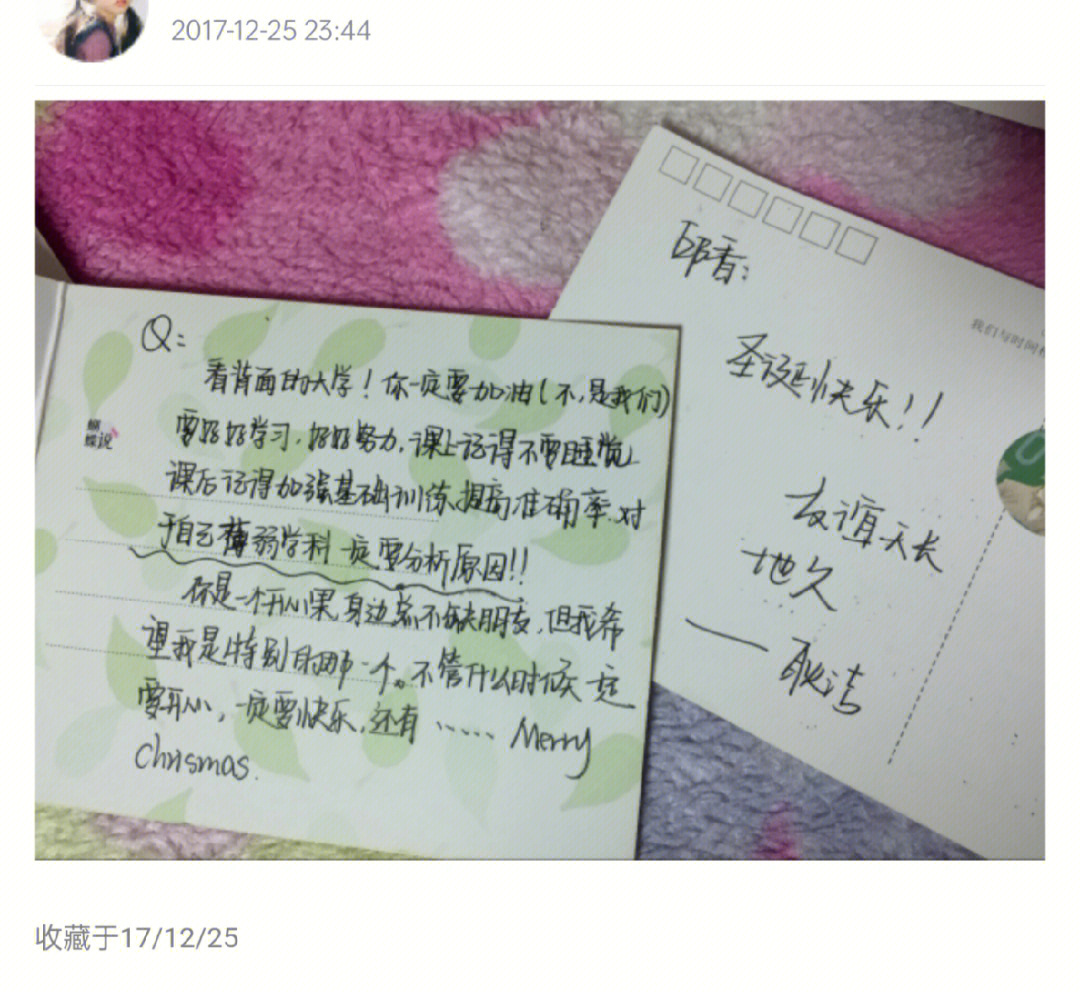 2017-12-25 23:44
Q:
看背面的大学！你一定要加油(不,是我们)
要好好学习,好好努力,课上记得不要睡觉
课后记得加强基础训练,提高准确率.对
于自己薄弱学科一定要分析原因!!
你是一个开心果,身边总不缺朋友,但我希
望我是特别的那一个。不管什么时候一定
要开心,一定要快乐,还有…… Merry
Chrismas.
蝴
蝶说
香:
圣诞快乐!!
友谊天长
地久
我们与时间
收藏于17/12/25